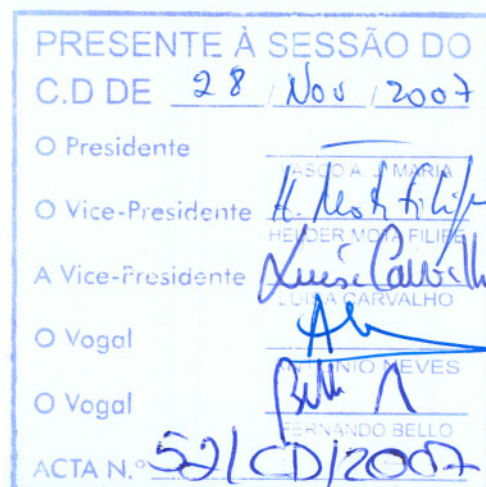 PRESENTE À SESSÃO DO
C.D DE 28 / Nov / 2007
O Presidente
VASCO A. J. MARIA
O Vice-Presidente H. Mota Filipe
HELDER MOTA FILIPE
A Vice-Presidente Luísa Carvalho
LUISA CARVALHO
O Vogal
ANTONIO NEVES
O Vogal
FERNANDO BELLO
ACTA N.º 52/CD/2007